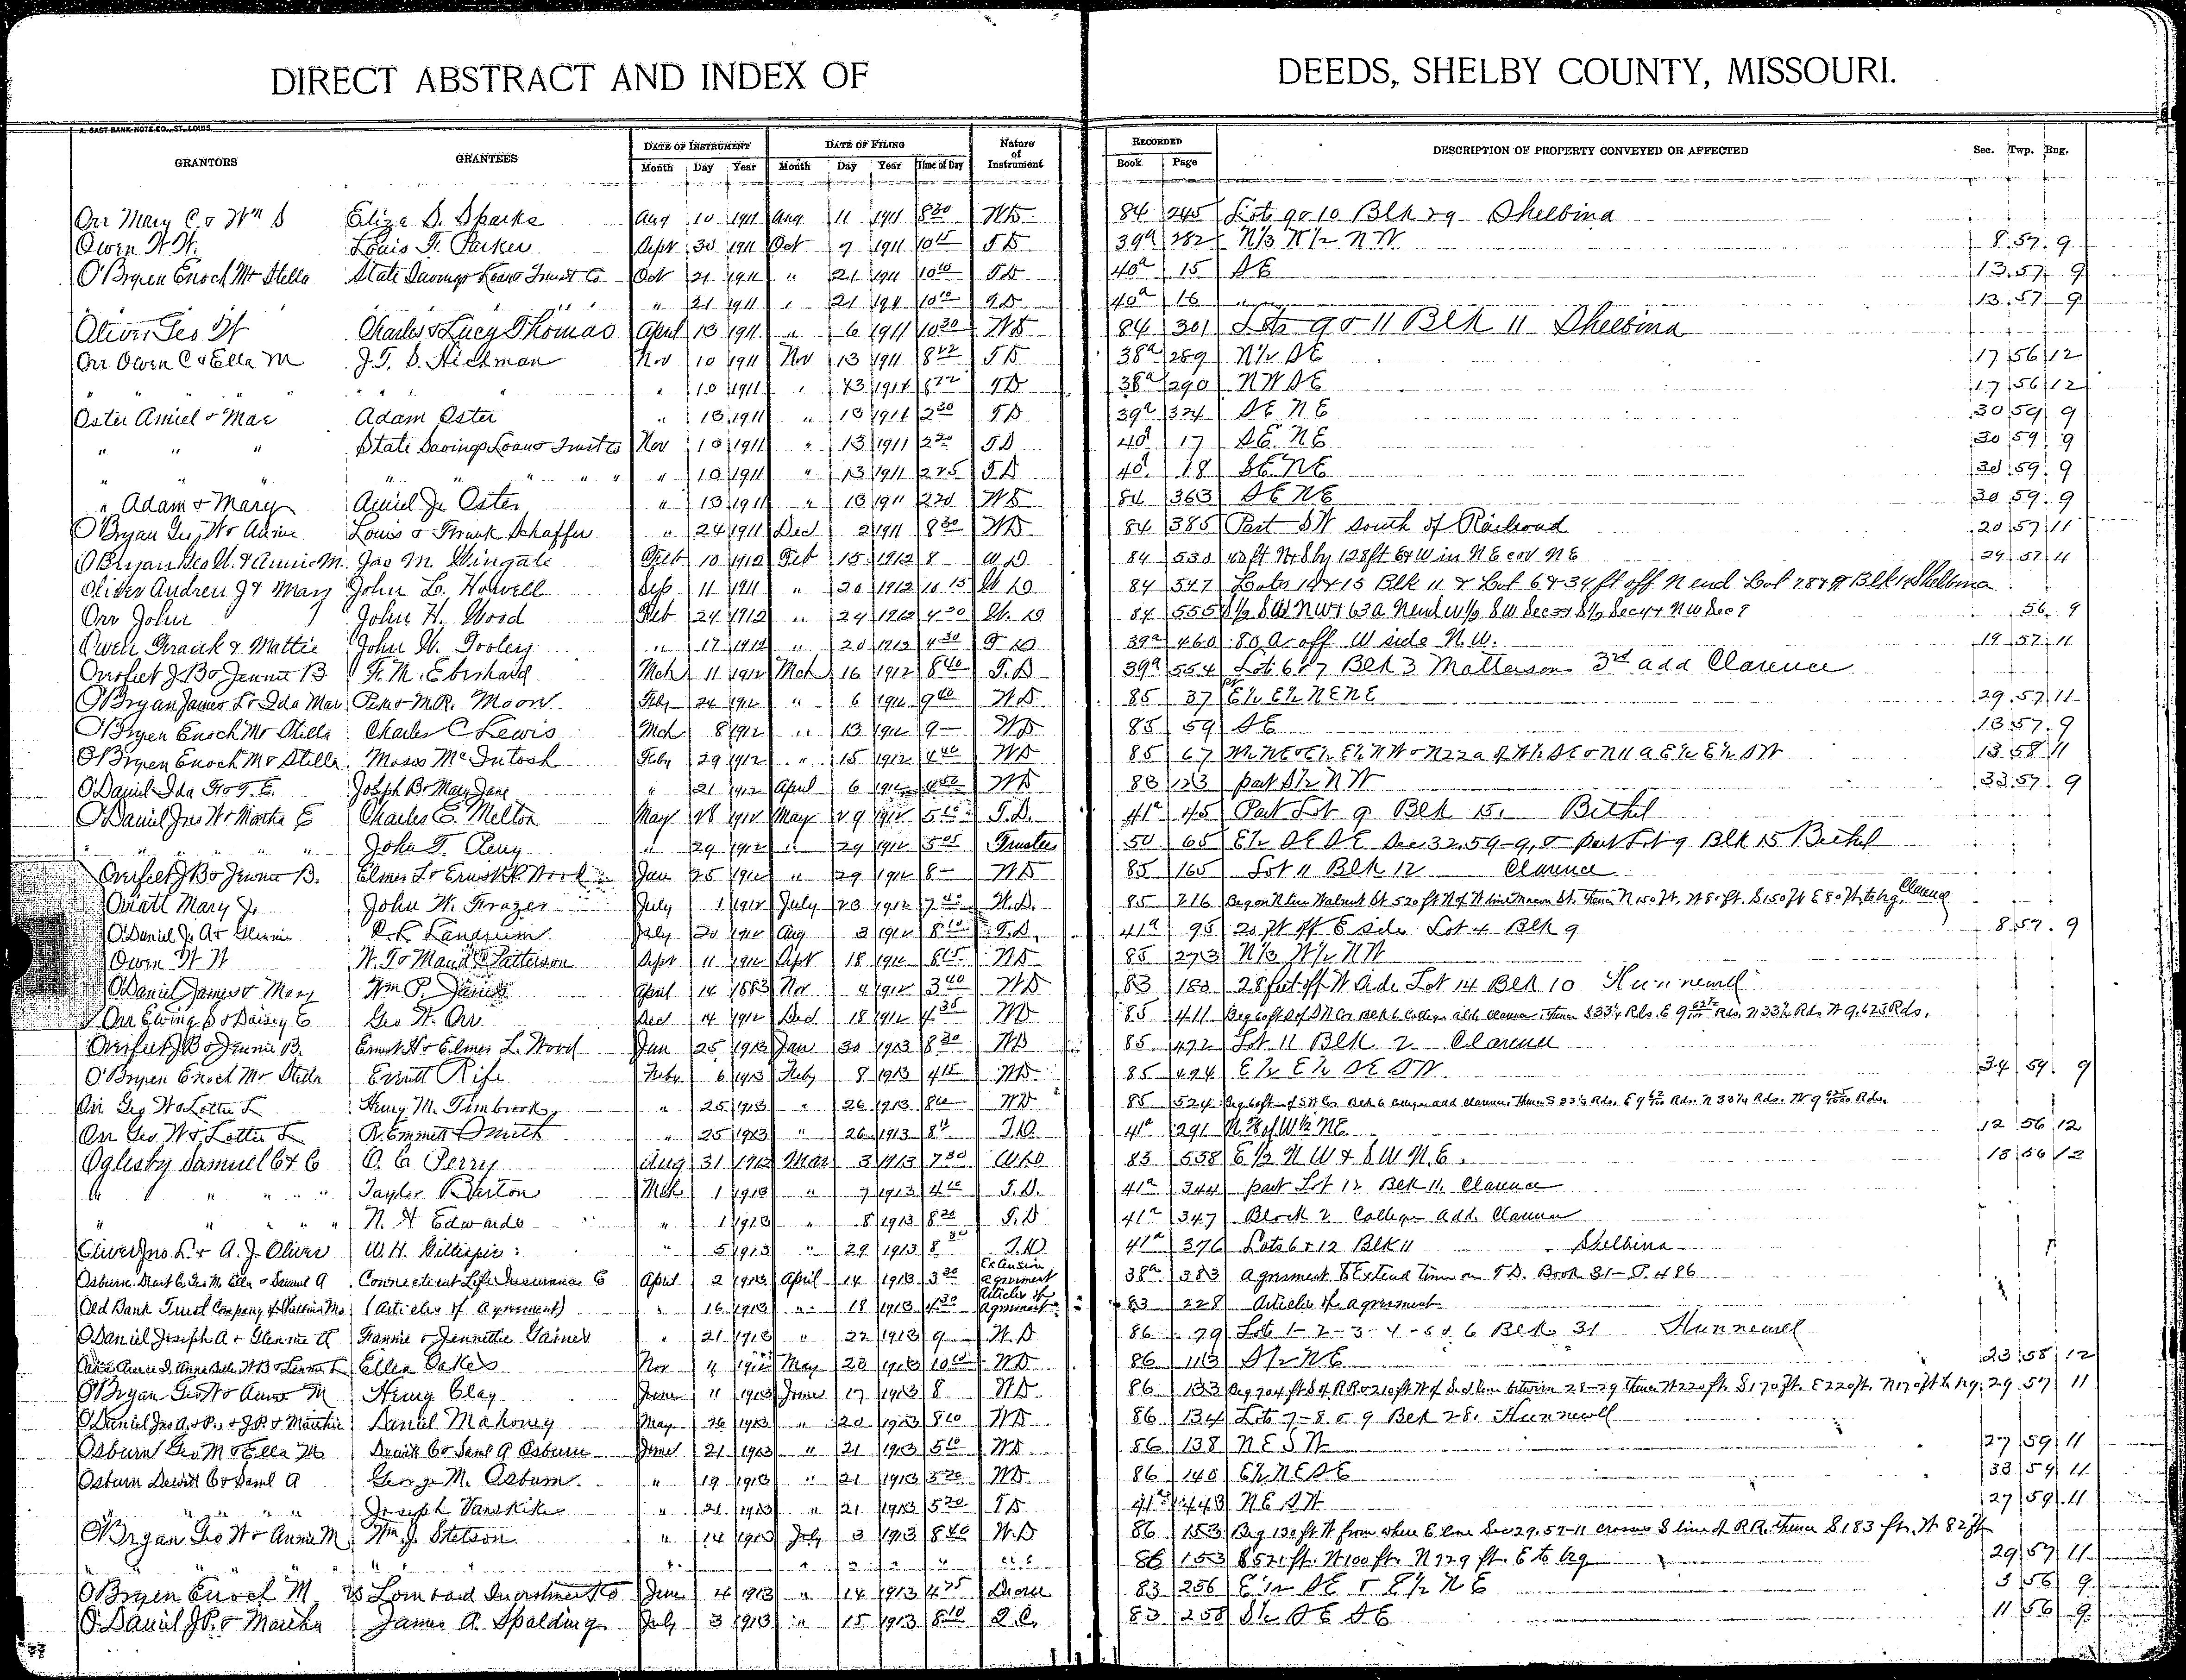 DIRECT ABSTRACT AND INDEX OF DEEDS, SHELBY COUNTY, MISSOURI.
A. GAST BANK NOTE CO., ST. LOUIS
GRANTORS GRANTEES DATE OF INSTRUMENT DATE OF FILING Nature of Instrument RECORDED DESCRIPTION OF PROPERTY CONVEYED OR AFFECTED Sec. Twp. Rng.
Month Day Year Month Day Year Time of Day Book Page
Orr Mary C & Wm S Eliza D. Sparks Aug 10 1911 Aug 11 1911 8 20 WD 84 245 Lots 9 & 10 Blk 29 Shelbina
Owen W W. Louis F. Parker Sept 30 1911 Oct 7 1911 10 15 TD 39a 282 N/3 W/2 NW 8 57 9
O'Bryen Enoch M & Stella State Savings Loan & Trust Co Oct 21 1911 " 21 1911 10 10 TD 40a 15 SE 13 57 9
" " " " " 21 1911 " 21 1911 10 10 TD 40a 16 " 13 57 9
Oliver Geo W Charles & Lucy Thomas April 13 1911 " 6 1911 10 30 WD 84 301 Lots 9 & 11 Blk 11 Shelbina
Orr Owen C & Ella M J. T. S. Hickman Nov 10 1911 Nov 13 1911 8 22 TD 38a 289 N/2 SE 17 56 12
" " " " 10 1911 " 13 1911 8 22 TD 38a 290 NW SE 17 56 12
Oster Amiel & Mae Adam Oster " 13 1911 " 13 1911 2 20 TD 39a 324 SE NE 30 59 9
" " " State Savings Loan & Trust Co Nov 10 1911 " 13 1911 2 20 TD 40a 17 SE. NE 30 59 9
" " " " " " " 10 1911 " 13 1911 2 25 TD 40a 18 SE. NE 30 59 9
" Adam & Mary Amiel Jr Oster " 13 1911 " 13 1911 2 20 WD 84 363 SE NE 30 59 9
O'Bryan Geo W & Annie Louis & Frank Schaffer " 24 1911 Dec 2 1911 8 30 WD 84 385 Part SW South of Railroad 20 57 11
O'Bryan Geo W. & Annie M. Jas M. Wingate Feb 10 1912 Feb 15 1912 8 WD 84 530 40 ft N & S by 128 ft E & W in NE cor NE 29 57 11
Oliver Andrew J & Mary John L. Howell Sep 11 1911 " 20 1912 11 15 WD 84 547 Lots 14 & 15 Blk 11 & Lot 6 & 34 ft off N end Lot 7 8 & 9 Blk 12 Shelbina
Orr John John H. Wood Feb 24 1912 " 24 1912 4 30 WD 84 555 56 9
Owen Frank & Mattie John W. Tooley " 17 1912 " 20 1912 4 30 TD 39a 460 80 A. off W side N.W. 19 57 11
Overfelt J B & Jennie B F. M. Eberhard Mch 11 1912 Mch 16 1912 8 40 T.D 39a 554 Lot 6 & 7 Blk 3 Matterson 3rd add Clarence
O'Bryan James L & Ida Mae M.R. Moon Feby 24 1912 " 6 1912 9 00 W.D. 85 37 E/2 E/2 NENE 29 57 11
O'Bryen Enoch M & Stella Charles C Lewis Mch 8 1912 " 13 1912 9 WD 85 59 SE 13 57 9
O'Bryen Enoch M & Stella Moses McIntosh Feby 29 1912 " 15 1912 4 00 WD 85 67 13 58 11
O'Daniel Ida F & T. E. Joseph B & Mary Jane " 21 1912 April 6 1912 WD 83 123 part S/2 NW 33 57 9
O'Daniel Jno W & Martha E Charles E. Melton May 28 1912 May 29 1912 5 15 T.D. 41a 45 Part Lot 9 Blk 15. Bethel
" " " John T. Perry " 29 1912 " 29 1912 5 05 Trustee 50 65 E/2 SE SE Sec 32.59-9, & part Lot 9 Blk 15 Bethel
Overfelt J B & Jennie B. Elmer L & Ernest H Wood Jan 25 1912 " 29 1912 8 WD 85 165 Lot 11 Blk 12 Clarence
Oviatt Mary J. John W. Frazer July 1 1912 July 23 1912 7 W.D. 85 216 Beg on N line Walnut St 520 ft W of W line Macon St. Thence N 150 ft. W 80 ft. S 150 ft E 80 ft to beg. Clarence
O'Daniel J. A & Glennie R L Landrum July 20 1912 Aug 3 1912 8 T.D. 41a 95 20 ft off E side Lot 4 Blk 9 8 57 9
Owen W W W. T & Maud E Patterson Sept 11 1912 Sept 18 1912 8 15 WD 85 273 N/3 W/2 NW
O'Daniel James & Mary Wm P. April 14 1883 Nov 4 1912 3 40 WD 83 183 28 feet off W side Lot 14 Blk 10 Hunnewell
Orr Ewing S & Daisey E Geo W. Orr Dec 14 1912 Dec 18 1912 4 35 WD 85 411 Beg 60 ft S of SW Cor Blk 6 College add Clarence thence S 33 1/2 Rds. E 9 Rds. N 33 1/2 Rds. W 9.625 Rds.
Overfelt J B & Jennie B. Ernest H & Elmer L. Wood Jan 25 1913 Jan 30 1913 8 30 WD 85 472 Lot 11 Blk 2 Clarence
O'Bryen Enoch M & Stella Everett Rife Feby 6 1913 Feby 8 1913 4 15 WD 85 494 E/2 E/2 SE SW 34 59 9
Orr Geo W & Lottie L Henry M. Timbrook " 25 1913 " 26 1913 8 00 WD 85 524 Beg 60 ft of SW Cor Blk 6 College add Clarence. Thence S 33 1/2 Rds. E 9 Rds. N 33 1/2 Rds. W 9 Rds.
Orr Geo. W & Lottie L R. Emmett Smith " 25 1913 " 26 1913 8 TD 41a 291 W 1/2 NE 12 56 12
Oglesby Samuel C & C O. C. Perry Aug 31 1912 Mar 3 1913 7 30 WD 83 558 E 1/2 NW & SW N.E. 18 56 12
" " " " Taylor Barton Mch 1 1913 " 7 1913 4 10 T.D. 41a 344 part Lot 12 Blk 11. Clarence
" " " " N. H Edwards " 1 1913 " 8 1913 8 20 T.D 41a 347 Block 2 College Add. Clarence
Oliver Jno. L. & A. J. Oliver W. H. Gillispie " 5 1913 " 29 1913 8 30 T.D 41a 376 Lots 6 & 12 Blk 11 Shelbina
Osburn Dewit C. Geo M. Ella & Samuel A Connecticut Life Insurance C April 2 1913 April 14 1913 3 30 Extension agreement 38a 383 Agreement to Extend time on T.D. Book 31-P. 486
Old Bank Trust Company of Shelbina Mo (Articles of Agreement) " 16 1913 " 18 1913 4 30 Articles of Agreement 83 228 Articles of Agreement
O'Daniel Joseph A & Glennie A Fannie & Jennettie Gaines " 21 1913 " 22 1913 9 W.D 86 29 Lots 1-2-3-4-5 & 6 Blk 31 Hunnewell
Ellen Oakes Nov 4 1912 May 23 1913 10 WD 86 113 S/2 NE 23 58 12
O'Bryan Geo W & Anna M Henry Clay June 11 1913 June 17 1913 8 WD 86 133 Beg 704 ft S of RR & 210 ft W of Sec line between 28-29 Thence W 220 ft. S 170 ft. E 220 ft. N 170 ft to beg. 29 57 11
O'Daniel Jas A. & J P & Marthie Daniel Mahoney May 26 1913 " 20 1913 8 10 WD 86 134 Lots 7-8 & 9 Blk 28. Hunnewell
Osburn Geo M & Ella M Dewitt C & Saml A Osburn June 21 1913 " 21 1913 5 10 WD 86 138 NE SW 27 59 11
Osburn Dewitt C & Saml A George M. Osburn " 19 1913 " 21 1913 5 20 WD 86 140 E/2 NE SE 33 59 11
" " " Joseph Vanskike " 21 1913 " 21 1913 5 20 TD 41a 443 NE SW 27 59 11
O'Bryan Geo W & Anna M Wm. J. Stetson " 14 1913 July 3 1913 8 40 W.D 86 153 Beg 130 ft W from where E line Sec 29.57-11 crosses S line of RR. thence S 183 ft. W 82 ft
" " " " " " " " " 86 153 S 521 ft. W 100 ft. N 729 ft. E to beg 29 57 11
O'Bryen Enoch M vs Lombard Investment Co June 4 1913 " 14 1913 4 25 Decree 83 256 E 1/2 SE & E 1/2 NE 3 56 9
O'Daniel J P. & Martha James A. Spalding July 3 1913 " 15 1913 8 10 Q.C. 83 258 S/2 SE SE 11 56 9